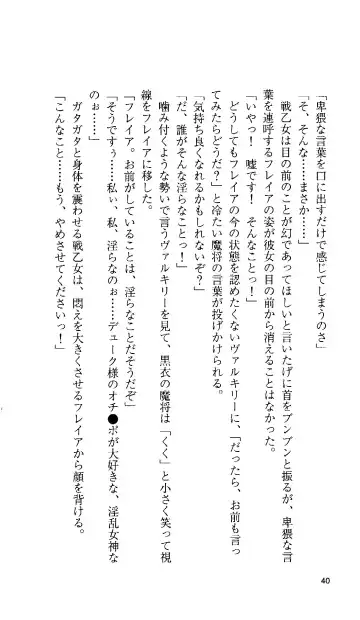 「卑猥な言葉を口に出すだけで感じてしまうのさ」
「そ、そんな……まさか……」
　戦乙女は目の前のことが幻であってほしいと言いたげに首をブンブンと振るが、卑猥な言
葉を連呼するフレイアの姿が彼女の目の前から消えることはなかった。
「いやっ！　嘘です！　そんなことっ！」
　どうしてもフレイアの今の状態を認めたくないヴァルキリーに、「だったら、お前も言っ
てみたらどうだ？」と冷たい魔将の言葉が投げかけられる。
「気持ち良くなれるかもしれないぞ？」
「だ、誰がそんな淫らなことっ！」
　噛み付くような勢いで言うヴァルキリーを見て、黒衣の魔将は「くく」と小さく笑って視
線をフレイアに移した。
「フレイア。お前がしていることは、淫らなことだそうだぞ」
「そうですぅ……私ぃ、私、淫らなのぉ……デューク様のオチ●ポが大好きな、淫乱女神な
のぉ……」
　ガタガタと身体を震わせる戦乙女は、悶えを大きくさせるフレイアから顔を背ける。
「こんなこと……もう、やめさせてくださいっ！」
40